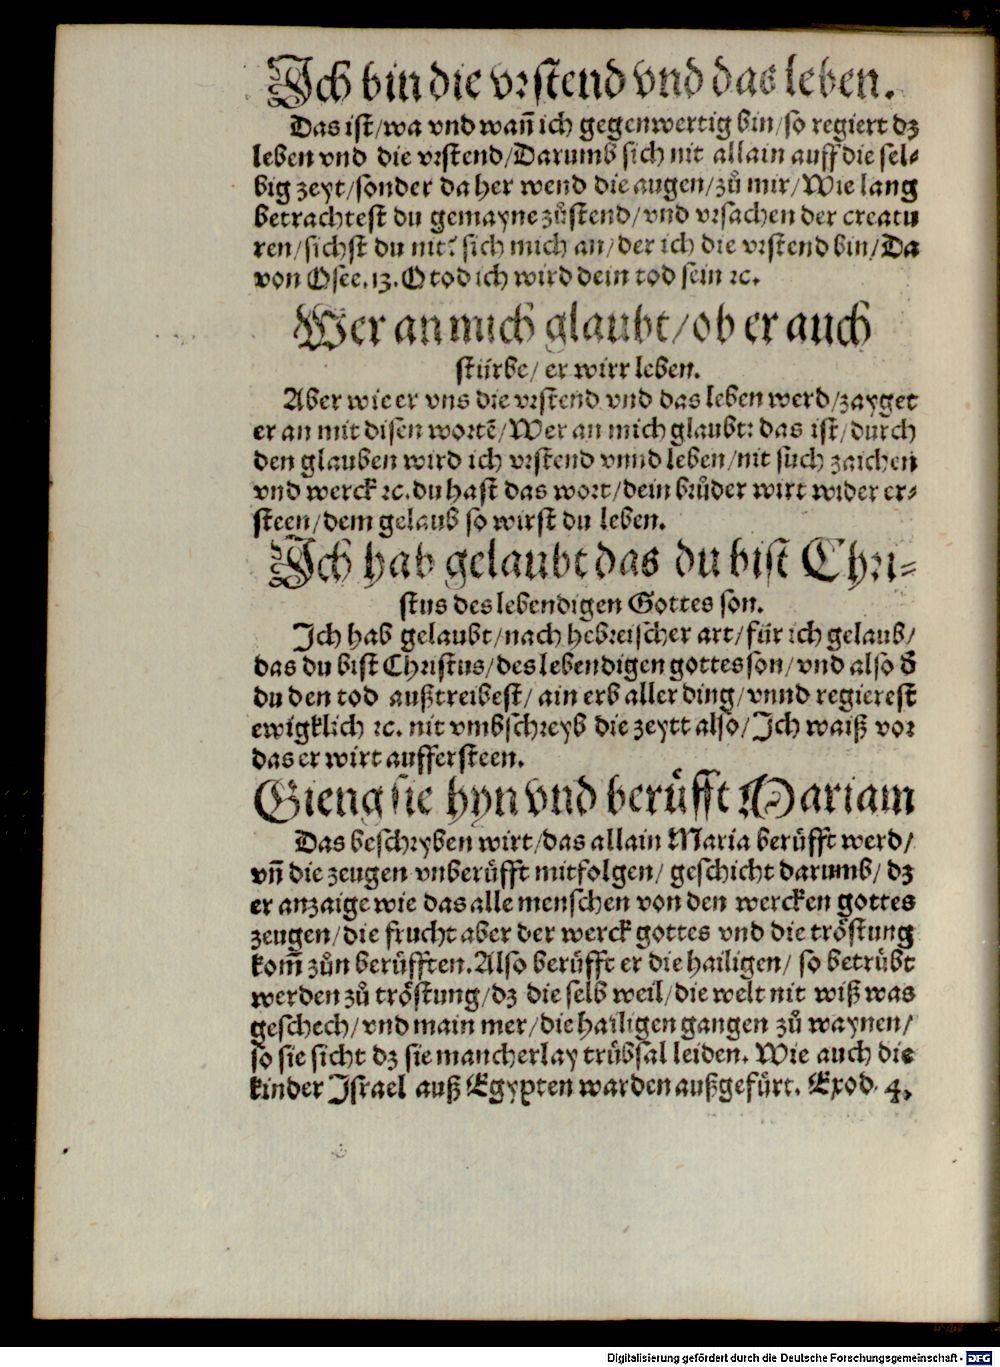 Ich bin die vrstend vnd das leben.
Das ist/wa vnd wañ ich gegenwertig bin/so regiert dz
leben vnd die vrstend/Darumb sich nit allain auff die sel⸗
big zeyt/sonder da her wend die augen/zů mir/Wie lang
betrachtest du gemayne zůstend/vnd vrsachen der creatu
ren/sichst du nit? sich mich an/der ich die vrstend bin/Da
von Osee. 13. O tod ich wird dein tod sein ꝛc.
Wer an mich glaubt/ob er auch
stürbe/ er wirr leben.
Aber wie er vns die vrstend vnd das leben werd/zayget
er an mit disen wortē/Wer an mich glaubt: das ist/durch
den glauben wird ich vrstend vnnd leben/nit such zaichen
vnd werck ꝛc. du hast das wort/dein brůder wirt wider er⸗
steen/dem gelaub so wirst du leben.
Ich hab gelaubt das du bist Chri⸗
stus des lebendigen Gottes son.
Ich hab gelaubt/nach hebreischer art/für ich gelaub/
das du bist Christus/des lebendigen gottes son/vnd also ď
du den tod außtreibest/ ain erb aller ding/vnnd regierest
ewigklich ꝛc. nit vmbschreyb die zeytt also/Ich waiß vor
das er wirt auffersteen.
Gieng sie hyn vnd berůfft Mariam
Das beschryben wirt/das allain Maria berůfft werd/
vñ die zeugen vnberůfft mitfolgen/ geschicht darumb/ dz
er anzaige wie das alle menschen von den wercken gottes
zeugen/die frucht aber der werck gottes vnd die tröstung
kom̃ zůn berůfften. Also berůfft er die hailigen/ so betrübt
werden zů tröstung/dz die selb weil/die welt nit wiß was
geschech/vnd main mer/die hailigen gangen zů waynen/
so sie sicht dz sie mancherlay trübsal leiden. Wie auch die
kinder Israel auß Egypten warden außgefürt. Exod. 4.
Digitalisierung gefördert durch die Deutsche Forschungsgemeinschaft - DFG